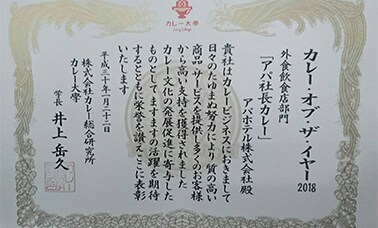 カレー大學
カレー・オブ・ザ・イヤー2018
外食飲食店部門
「アパ社長カレー」
アパホテル株式会社 殿
貴社はカレービジネスにおきまして
日々のたゆまぬ努力により質の高い
商品・サービスを提供し多くのお客様
から高い支持を獲得されました
カレー文化の発展促進に寄与した
ものとしてますますの活躍を期待
するとともに栄誉を讃えここに表彰
いたします
平成三十年一月二十二日
株式会社カレー総合研究所
カレー大學
学長 井上岳久